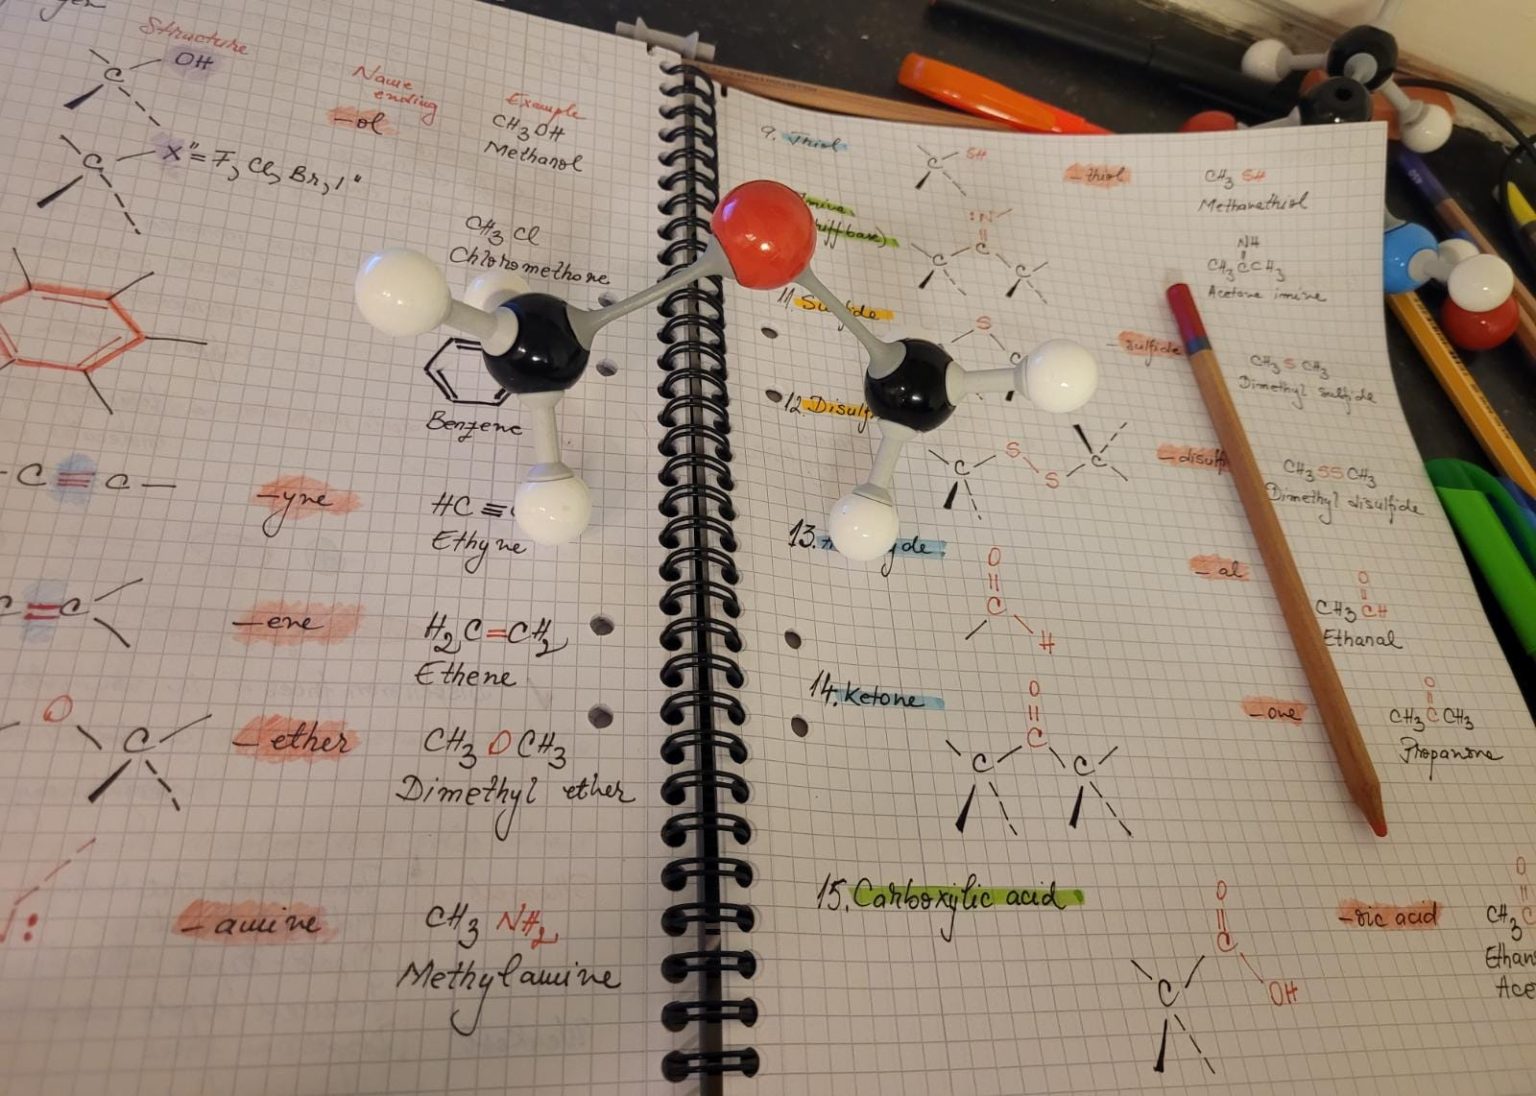 Structure
Name
ending
Example
C
OH
-ol
CH3OH
Methanol
C
X" = F, Cl, Br, I"
CH3 Cl
Chloromethane
Benzene
-C≡C-
-yne
HC≡
Ethyne
C=C
-ene
H2C=CH2
Ethene
O
C
-ether
CH3 O CH3
Dimethyl ether
-amine
CH3 NH2
Methylamine
9. Thiol
C
SH
-thiol
CH3 SH
Methanethiol
:N
C
C
C
NH
CH3CCH3
Acetone imine
11. Sulfide
S
-sulfide
CH3 S CH3
Dimethyl sulfide
12. Disulf
C
S
S
C
-disulf
CH3SSCH3
Dimethyl disulfide
13.
yde
O
C
H
-al
O
CH3 CH
Ethanal
14. Ketone
O
C
C
C
-one
O
CH3 C CH3
Propanone
15. Carboxylic acid
O
C
C
OH
-oic acid
O
CH3C
Ethan
Ace